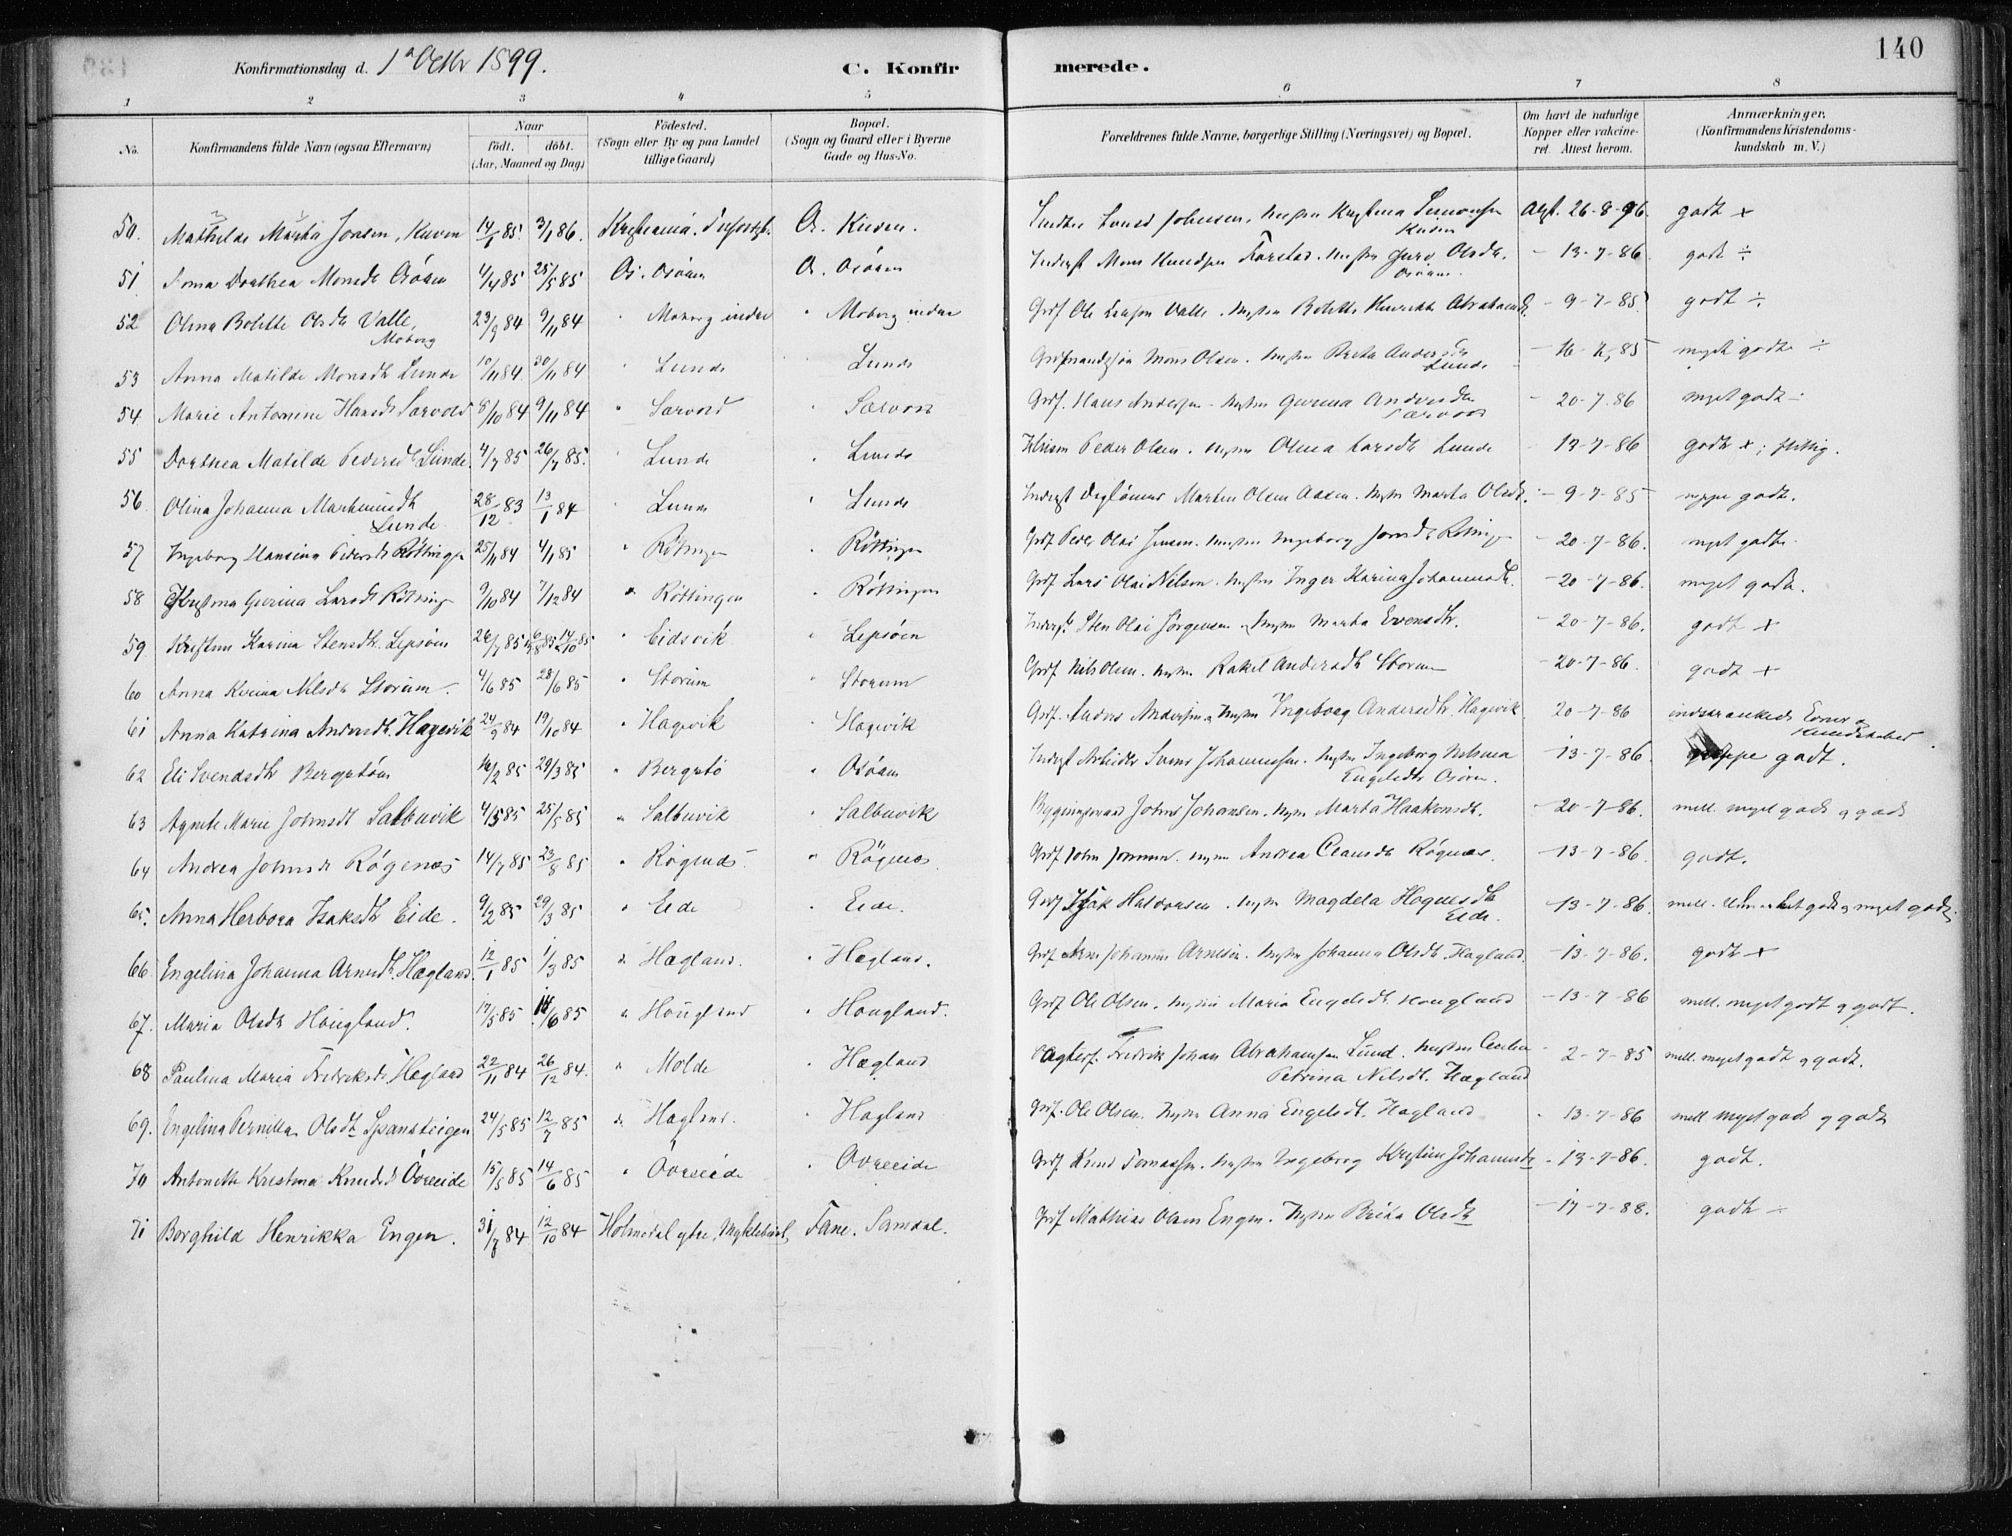 140
Konfirmationsdag d. 1ª Octbr 1899. C. Konfirmerede.
1 2 3 4 5 6 7 8
No. Konfirmandens fulde Navn (ogsaa Efternavn) Naar født. døbt. (Aar, Maaned og Dag) Fødested. (Sogn eller By og paa Landet tillige Gaard) Bopæl. (Sogn og Gaard eller i Byerne Gade og Hus-No. Forældrenes fulde Navne, borgerlige Stilling (Næringsvei) og Bopæl. Om havt de naturlige Kopper eller vakcineret. Attest herom. Anmærkninger. (Konfirmandens Kristendomskundskab m. V.)
50. Mathilde Marta Jonsen, Kuven 14/1 85. 3/1 86. Kristiania. Os. Kuven. Kuven Att. 26-8-96. godt +
51 Dorthea Monsdtr Osøren 4/4 85 25/5 85 Os. Osøren Os. Osøren Inderst Mons Knudsen Hustru Guro Olsdtr. Osøren. - 13-7-86. godt ÷
52 Olina Bolette Olsdtr Valle, Moberg 23/9 84 9/11 84 " Moberg indre " Moberg indre Grdf Ole Larsen Valle. Hustru Bolette Henrikke Abrahamsd. - 9-7-85. godt ÷
53 Anna Matilde Monsdtr Lunde 10/11 84 30/11 84 " Lunde Lunde Mons Olsen. Hustru Brita Andersdtr Lunde - 85 meget godt ÷
54. Marie Antonine Hansdtr Særvold 5/10 84 9/11 84 " Særvold " Særvold Grdf. Hans Andersen. Hustru Gurina Andersdtr Særvold - 20-7-86 meget godt ÷
55 Dorthea Matilde Pedersdtr Lunde. 4/7 85 26/7 85. " Lunde " Lunde Peder Olsen. Hustru Olina Larsdtr Lunde - 13-7-86 godt +; flittig.
56. Olina Johanna Martinusdtr Lunde 28/12 83 13/1 84 " Lunde " Lunde Inderst Martin Olsen. Hustru Marta Olsdtr. - 9-7-85 neppe godt.
57 Ingeborg Hansina Pedersdtr Røttingen 25/11 84 4/1 85 " Røttingen " Røttingen Grdf. Peder Olai Jensen. Hustru Ingeborg Jonsdtr Røttingen - 20-7-86. meget godt.
58 Kristina Gurina Larsdtr Røttingen 9/10 84 7/12 84 " Røttingen " Røttingen Grdf Lars Olai Nilsen. Hustru Inger Karina Johannesdtr. - 20-7-86. meget godt.
59. Kristine Karina Stensdtr. Lepsøen 26/7 85 14/10 85 " Eidsvik " Lepsøen Inderst Sten Olai Jørgensen og Hustru Marta Evensdtr. - 20-7-86. godt +
60 Anna Nilsdtr Storum. 4/6 85 28/6 85 " Storum " Storum Grdf Nils Olsen. Hustru Rakel Andersdtr Storum - 20-7-86. godt +
61 Anna Katrina Andersdtr. Hagevik 24/9 84 19/10 84 " Hagevik " Hagevik Grdf. Anders Andersen og Hustru Ingeborg Andersdtr. Hagevik 20-7-86 indskrænkede Evner og Kundskaber.
62 Eli Svendsdtr Bergstøen 29/3 85 " Bergstø " Osøren Inderst Arbeider Svend Johannessen. Hustru Ingeborg Nilsina Engelsdtr Osøren. - 13-7-86. neppe godt.
63 Agnete Marie Johnsdtr Salbuvik 4/5 85 25/5 85 " Salbuvik " Salbuvik Bygningsmand Johns Johansen. Hustru Marta Haakonsdtr. - 20-7-86. mell. meget godt og godt
64 Andrea Johnsdtr Røgenæs 14/7 85 23/8 85 " Røgenæs " Røgenæs Grdf John Jonsson. Hustru Andrea Clausdtr Røgnæs. - 13-7-86. godt.
65. Anna Herborg Isaksdtr Eide. 9/2 85 29/3 85 " Eide " Eide. Grdf Isak Halvorsen. Hustru Magdela Hognesdtr Eide. - 13-7-86. mell. godt og meget godt.
66. Engelina Johanna Arnesdtr. Hægland. 12/1 85 1/3 85 " Hægland. " Hægland. Grdf Arne Johannes Arnesen. Hustru Johanna Olsdtr. Hægland. - 13-7-86. godt +
67. Maria Olsdtr Hougland. 17/5 85 14/6 85 " Hougland " Hougland. Grdf Ole Olsen. Hustru Maria Engelsdtr Hougland - 13-7-86 mell. meget godt og godt.
68 Paulina Maria Fredriksdtr Hægland 22/11 84 26/12 84. " Molde " Hægland Fredrik Johan Abrahamsen Lund. Hustru Cecilia Petrina Nilsdtr. Hægland - 2-7-85 mell. meget godt og godt.
69. Engelina Pernilla Olsdtr Spansteigen 24/5 85 12/7 85 " Hagland. " Hagland Grdf. Ole Olsen. Hustru Anna Engelsdtr. Hagland - 13-7-86 mell. meget godt og godt
70 Antonette Kristina Knudsd Øvreeide 15/5 85 14/6 85 " Øvreeide " Øvreeide Grdf Knud Tomassen. Hustru Ingeborg Kristine Johannesdtr - 13-7-86. godt.
71 Borghild Henrikka Engen. 31/8 84 12/10 84 Holmedal ytre, Myklebust, Fane. Samdal. Grdf Mathias Olsen Engen. Hustru Brita Olsdtr - 17-7-88. godt ÷